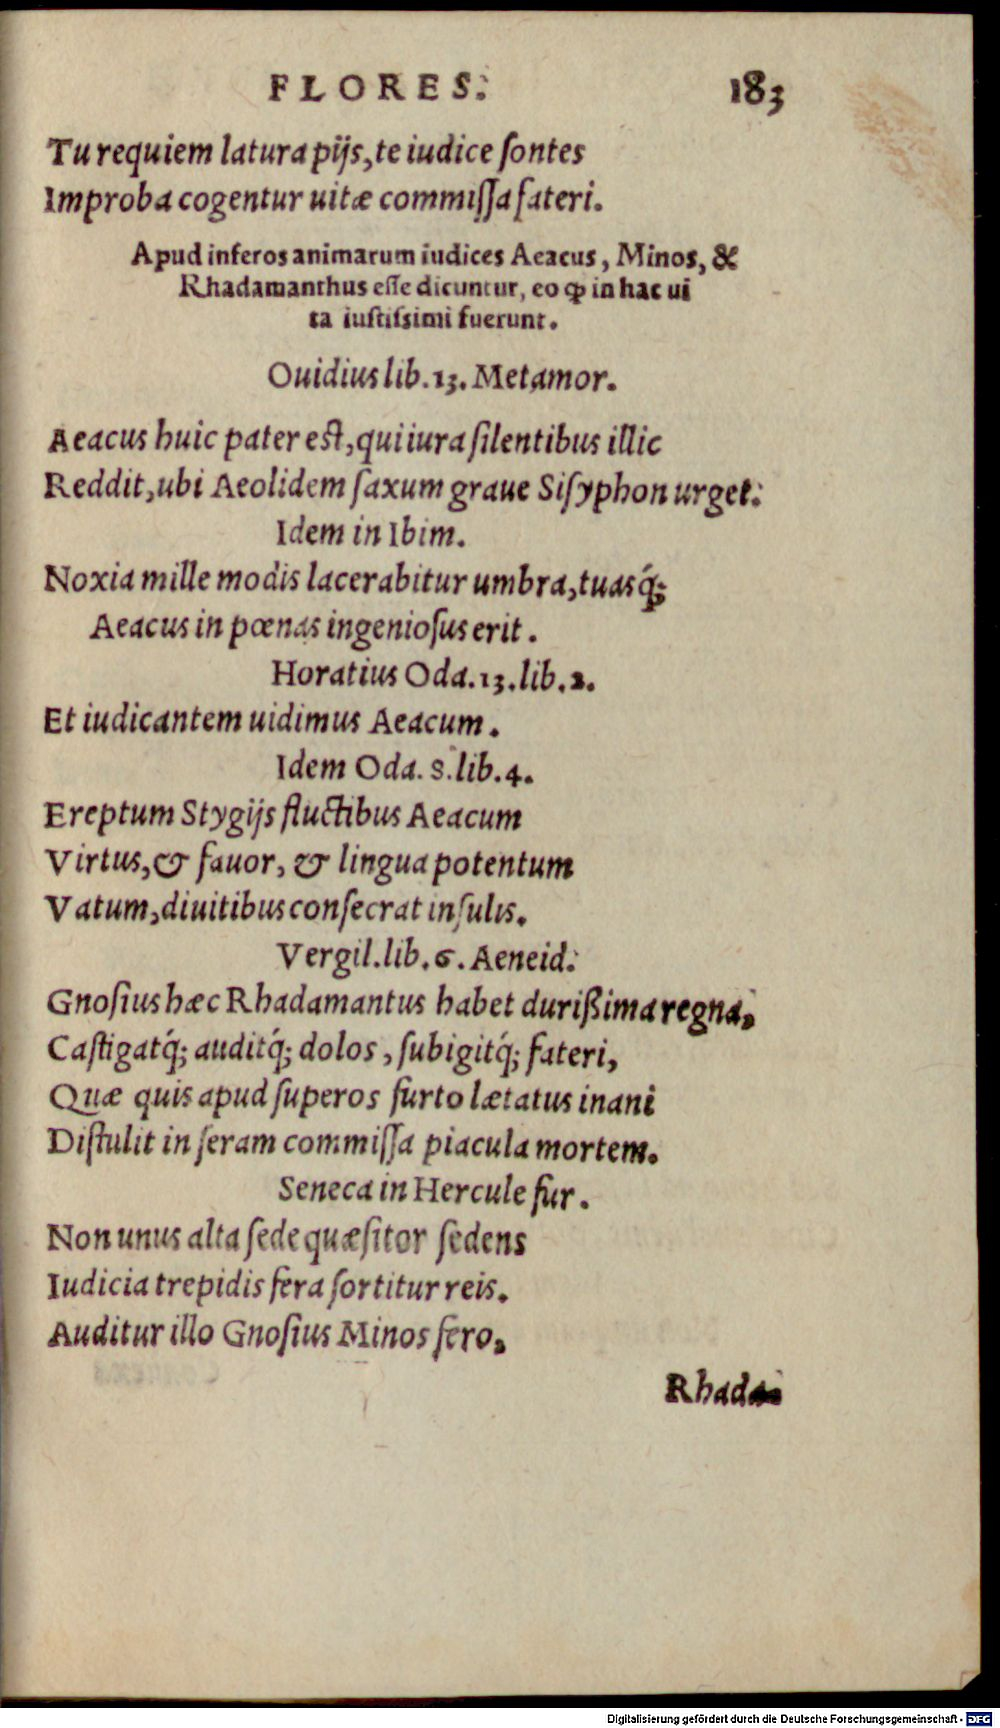 FLORES. 183
Tu requiem latura pijs, te iudice ſontes
Improba cogentur uitæ commiſſa fateri.
Apud inferos animarum iudices Aeacus, Minos, &
Rhadamanthus eſſe dicuntur, eo ꝙ in hac ui
ta iuſtiſsimi fuerunt.
Ouidius lib. 13. Metamor.
Aeacus huic pater eſt, qui iura ſilentibus illic
Reddit, ubi Aeolidem ſaxum graue Siſyphon urget.
Idem in Ibim.
Noxia mille modis lacerabitur umbra, tuasq́;
Aeacus in pœnas ingenioſus erit.
Horatius Oda. 13. lib. 2.
Et iudicantem uidimus Aeacum.
Idem Oda. 8. lib. 4.
Ereptum Stygijs fluctibus Aeacum
Virtus, & fauor, & lingua potentum
Vatum, diuitibus conſecrat inſulis.
Vergil. lib. 6. Aeneid.
Gnoſius hæc Rhadamantus habet durißima regna,
Caſtigatq́; auditq́; dolos, ſubigitq́; fateri,
Quæ quis apud ſuperos furto lætatus inani
Diſtulit in ſeram commiſſa piacula mortem.
Seneca in Hercule fur.
Non unus alta ſede quæſitor ſedens
Iudicia trepidis fera ſortitur reis.
Auditur illo Gnoſius Minos fero,
Rhada-
Digitalisierung gefördert durch die Deutsche Forschungsgemeinschaft - DFG